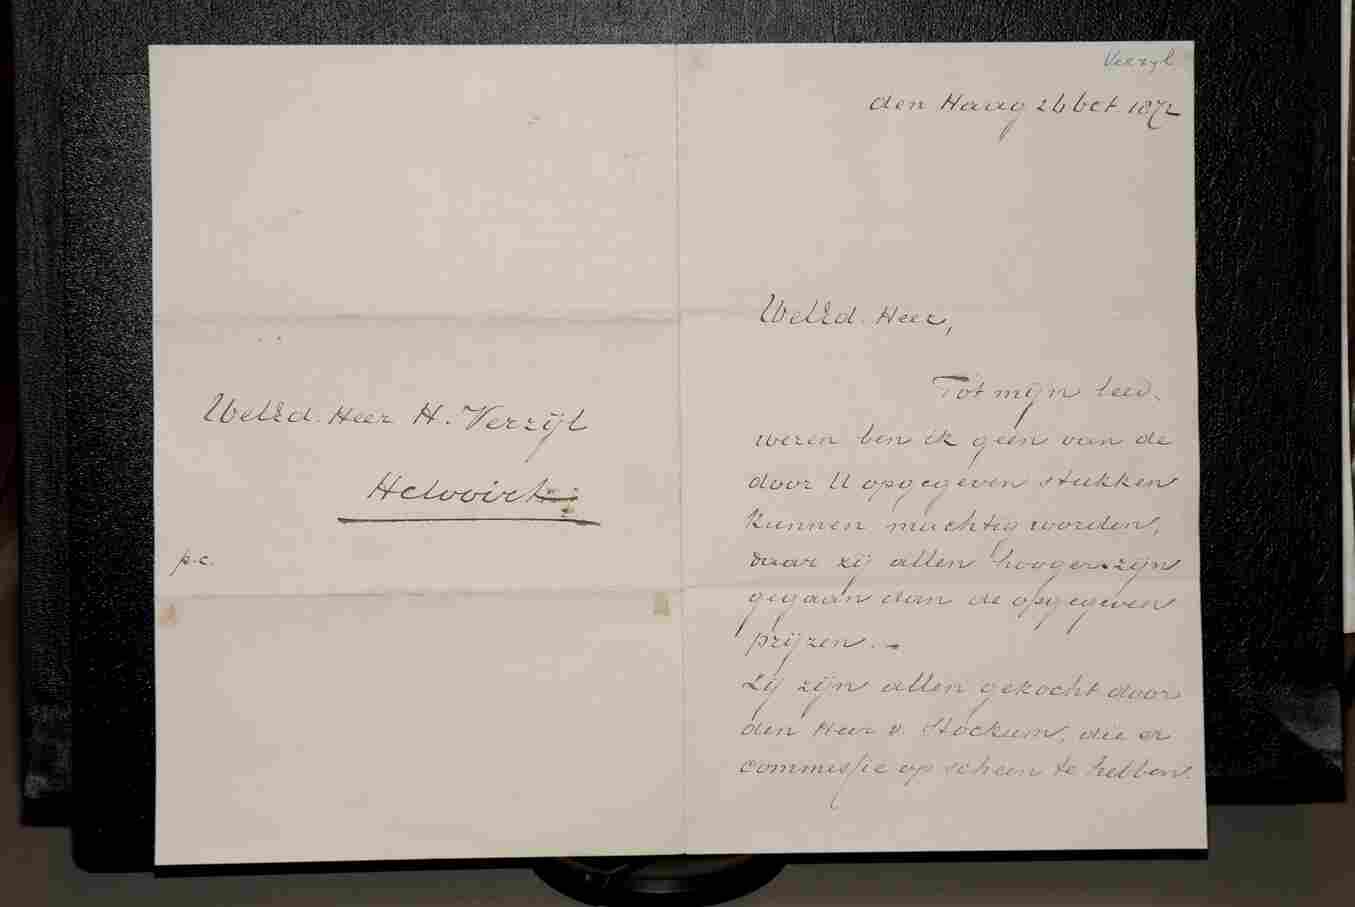 WelEd. Heer H. Verzijl
Helvoirt
p.c.
Verzyl
den Haag 26 Oct 1872
WelEd. Heer,
Tot mijn leed-
wezen ben ik geen van de
door U opgegeven stukken
kunnen machtig worden,
daar zij allen hooger zijn
gegaan dan de opgegeven
prijzen. -
Zij zijn allen gekocht door
den Heer v. Stockum, die er
commissie op scheen te hebben.